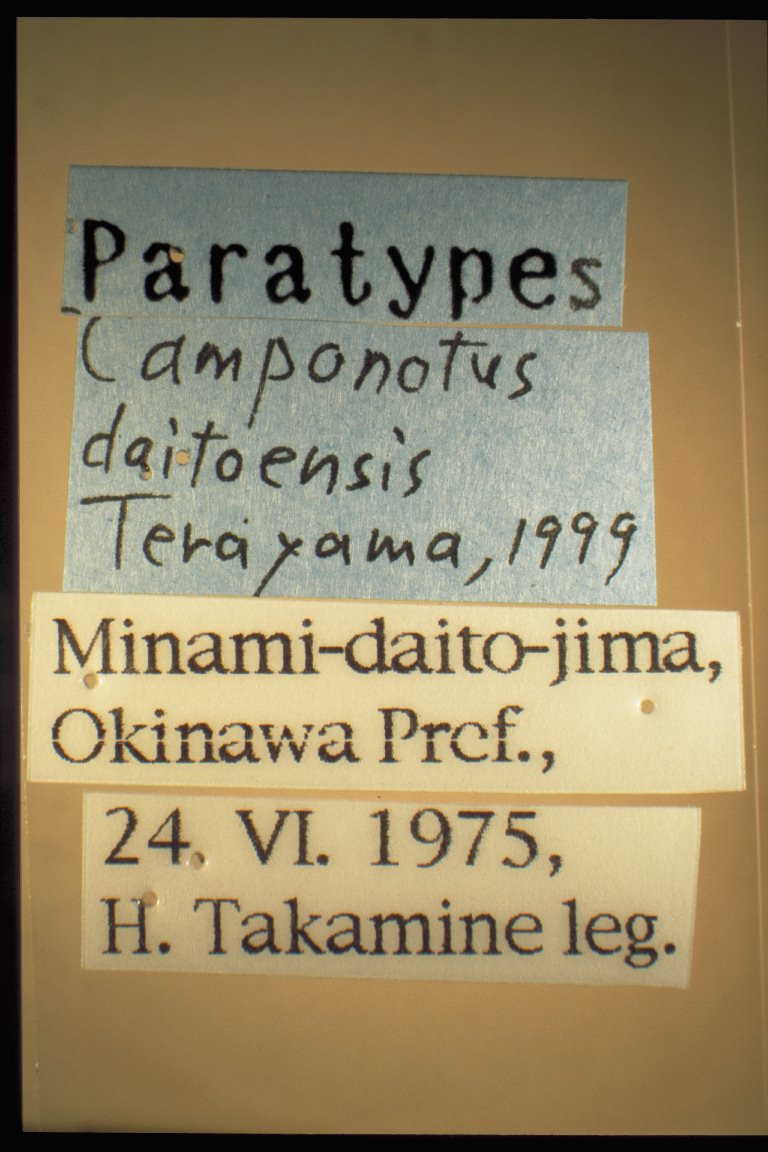 Paratypes
Camponotus
daitoensis
Terayama, 1999
Minami-daito-jima,
Okinawa Pref.,
24. VI. 1975,
H. Takamine leg.